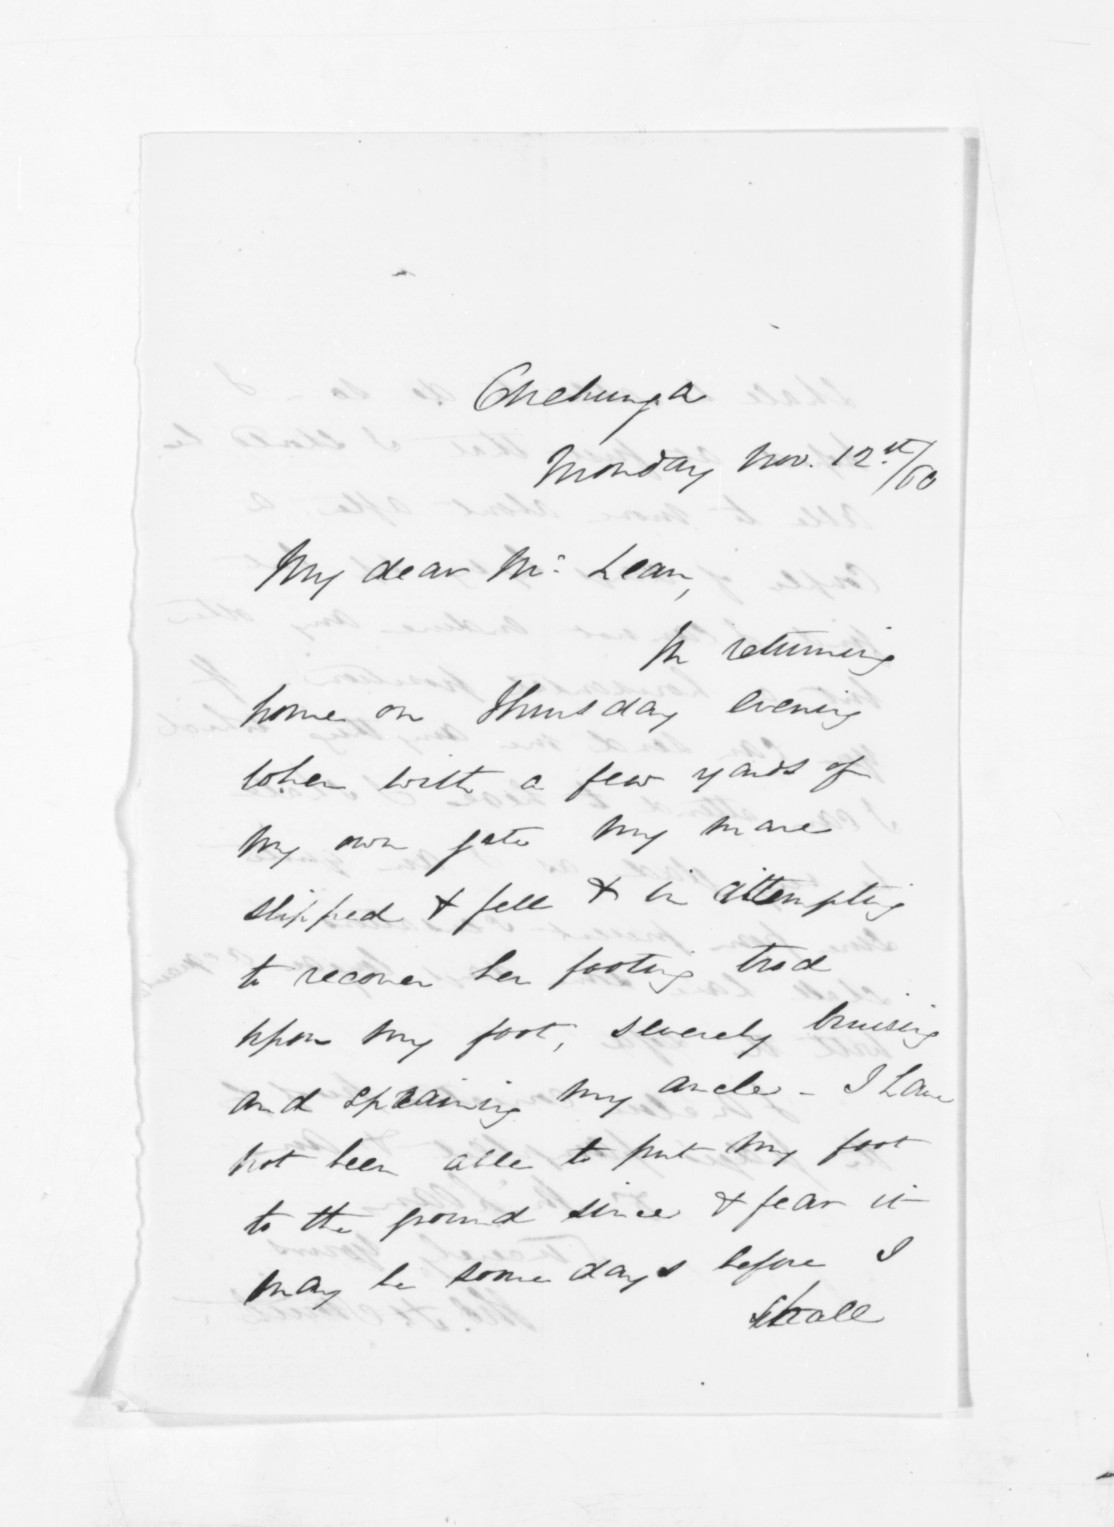 Onehunga
Monday Nov. 12th/60
My dear Mc. Lean,
In returning
home on Thursday evening
when with a few yards of
my own gate my mare
slipped & fell & in attempting
to recover her footing trod
upon my foot, severely bruising
and spraining my ancle - I have
not been able to put my foot
to the ground since & fear it
may be some days before I
shall